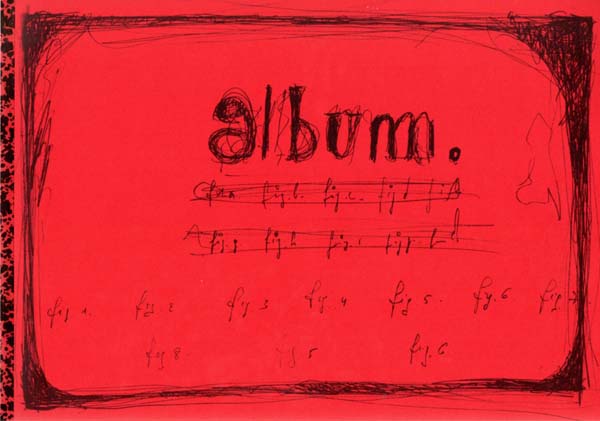 album.
fig. b. fig. c. fig d
fig g fig h fig. i
fig 1. fig. 2 fig 3 fig. 4 fig 5. fig. 6 fig. 7.
fig 8. fig 5 fig. 6